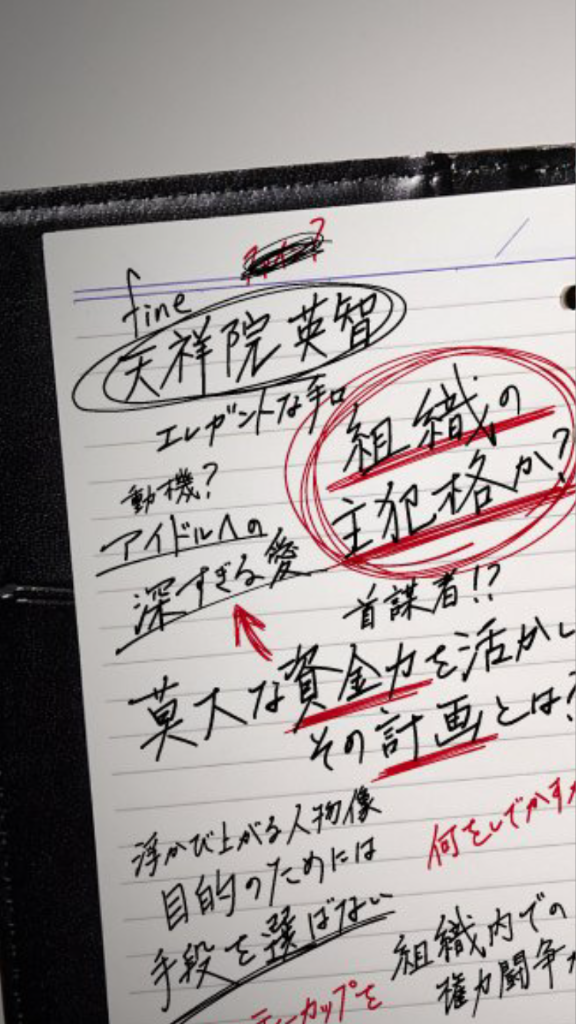 fine
天祥院 英智
エレガントな手口
組織の
主犯格か?
動機?
アイドルへの
深すぎる愛
首謀者!?
莫大な資金力を活かし
その計画とは?
浮かび上がる人物像
目的のためには
手段を選ばない
何をしでかすか
組織内での
権力闘争
ティーカップを